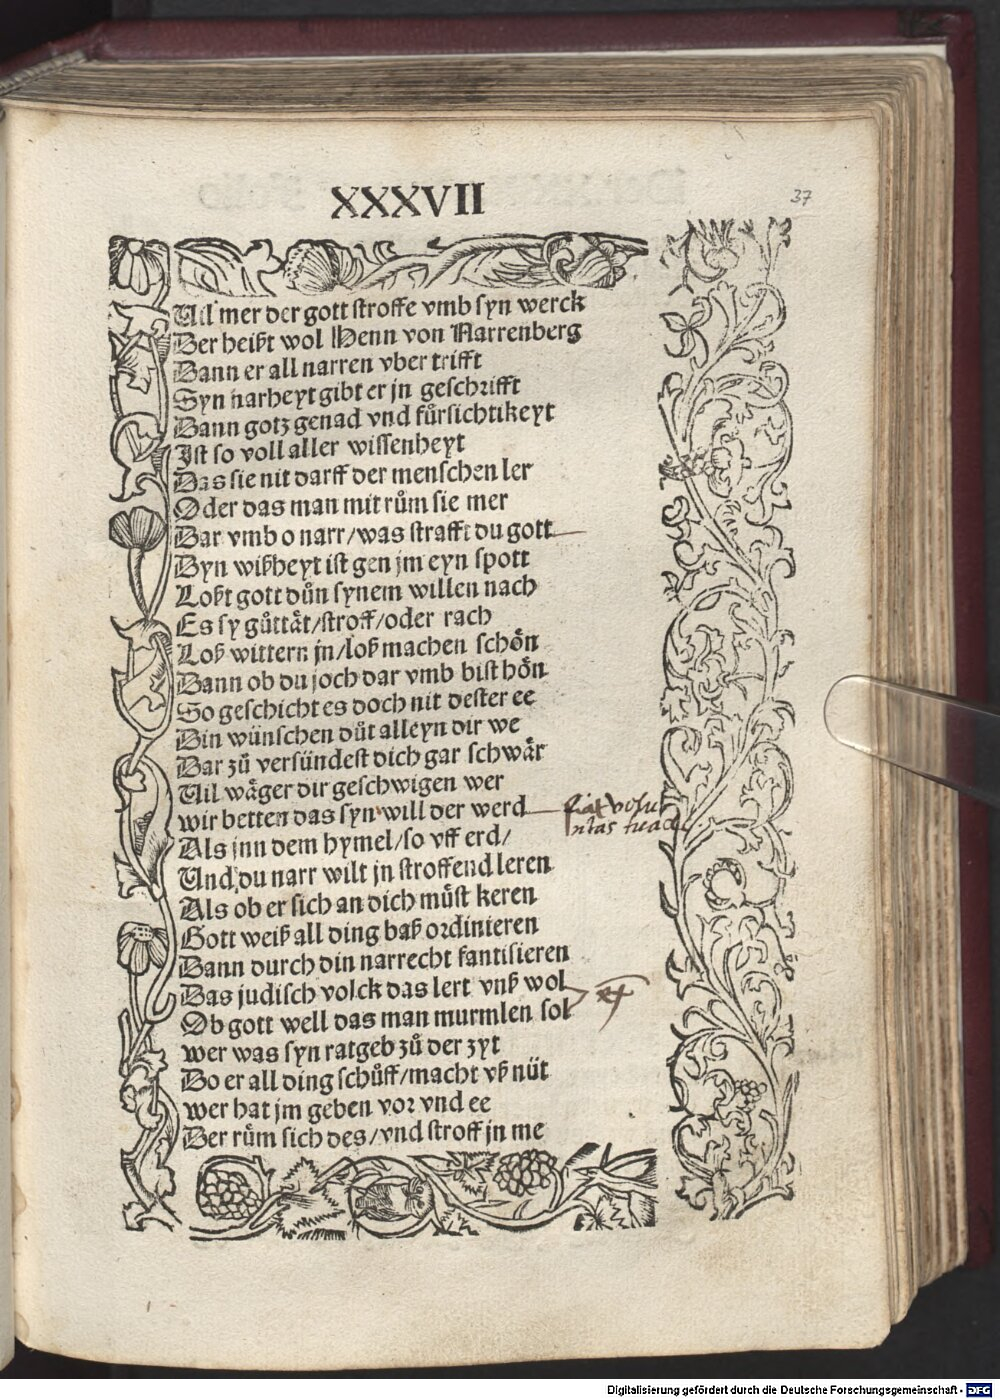 XXXVII
37
Uil mer der gott stroffe vmb syn werck
Der heißt wol Henn von Narrenberg
Dann er all narren vber trifft
Syn narheyt gibt er jn geschrifft
Dann gotz genad vnd fůrsichtikeyt
Ist so voll aller wissenheyt
Das sie nit darff der menschen ler
Oder das man mit rům sie mer
Dar vmb o narr / was straffst du gott
Dyn wißheyt ist gen jm eyn spott
Loßt gott důn synem willen nach
Es sy gůttät / stroff / oder rach
Loß wittern jn / loß machen schön
Dann ob du joch dar vmb bist hön
So geschicht es doch nit dester ee
Din wünschen důt alleyn dir we
Dar zů versündest dich gar schwär
Uil wäger dir geschwigen wer
wir betten das syn will der werd
fiat volu
ntas tua
Als jnn dem hymel / so vff erd /
Und du narr wilt jn stroffend leren
Als ob er sich an dich můst keren
Gott weiß all ding baß ordinieren
Dann durch din narrecht fantisieren
Das judisch volck das lert vnß wol
Ob gott well das man murmlen sol
wer was syn ratgeb zů der zyt
Do er all ding schůff / macht vß nüt
wer hat jm geben vor vnd ee
Der rům sich des / vnd stroff jn me
Digitalisierung gefördert durch die Deutsche Forschungsgemeinschaft - DFG